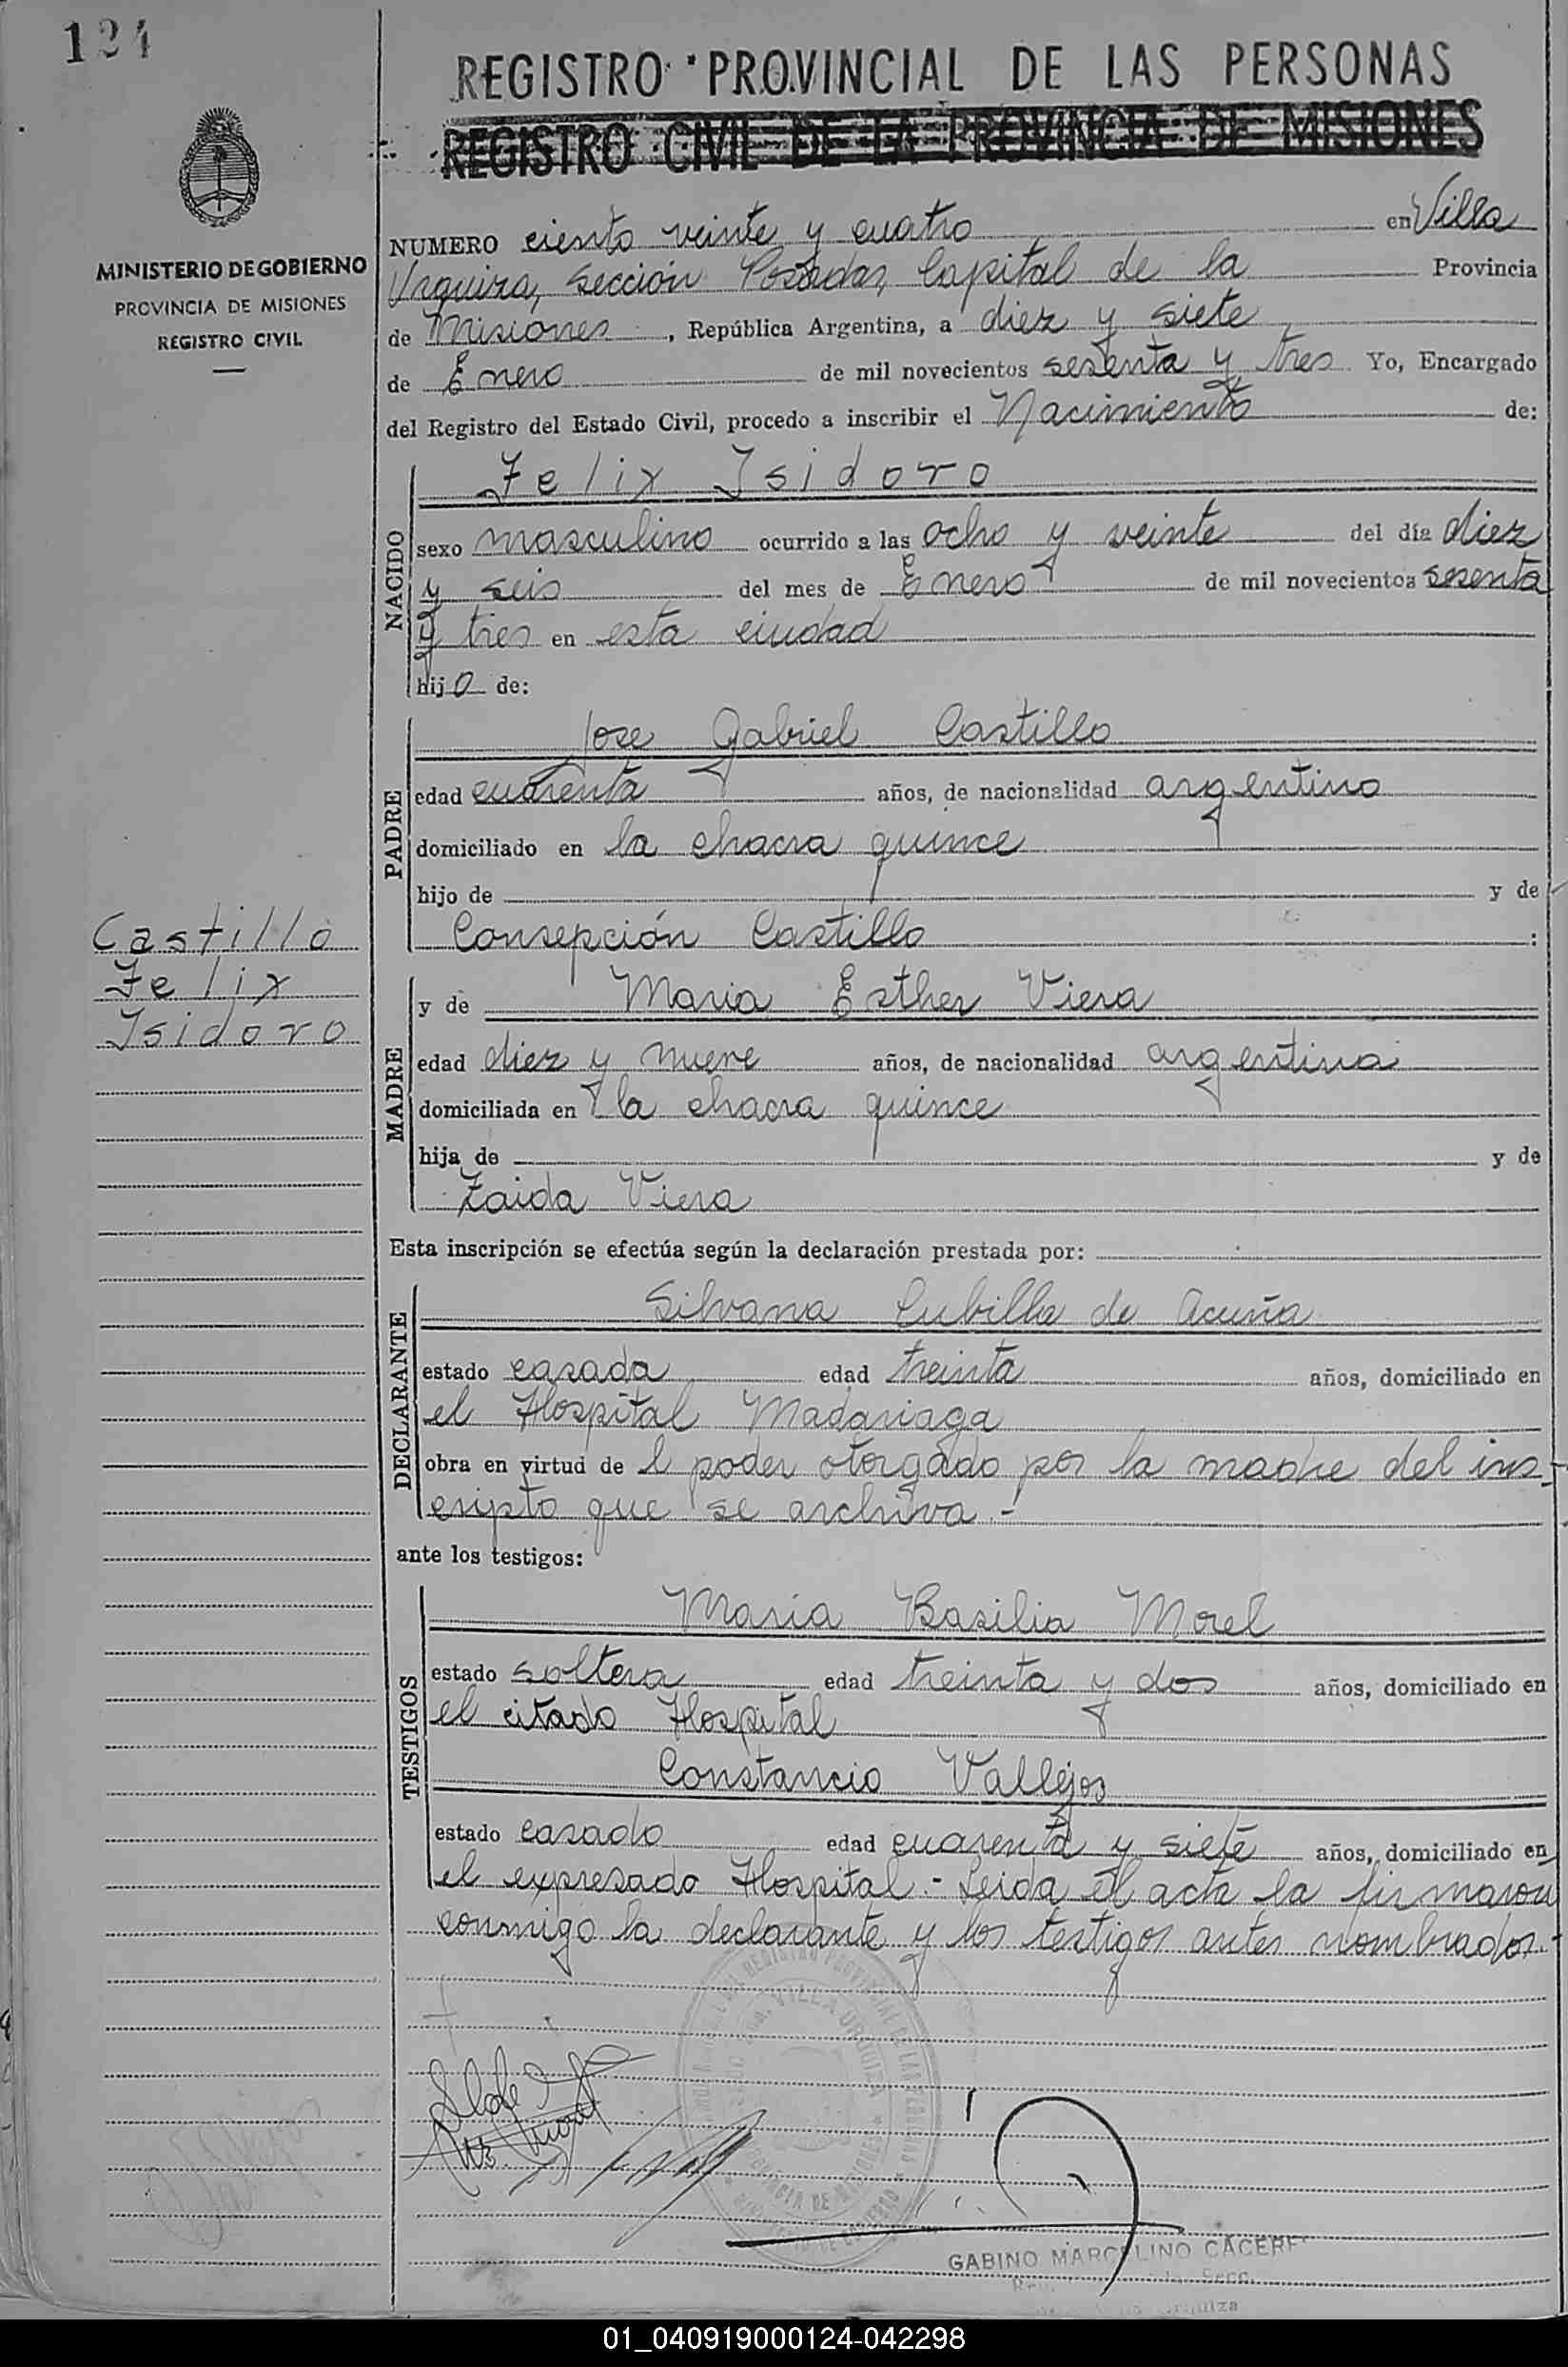 124
REGISTRO PROVINCIAL DE LAS PERSONAS
REGISTRO CIVIL DE LA PROVINCIA DE MISIONES
MINISTERIO DE GOBIERNO
PROVINCIA DE MISIONES
REGISTRO CIVIL
NUMERO ciento veinte y cuatro en Villa
Urquiza, sección Posadas, Capital de la Provincia
de Misiones, República Argentina, a diez y siete
de Enero de mil novecientos sesenta y tres Yo, Encargado
del Registro del Estado Civil, procedo a inscribir el Nacimiento de:
NACIDO
Felix Isidoro
sexo masculino ocurrido a las ocho y veinte del día diez
y seis del mes de Enero de mil novecientos sesenta
y tres en esta ciudad
hijo de:
PADRE
Jose Gabriel Castillo
edad cuarenta años, de nacionalidad argentino
domiciliado en la chacra quince
hijo de y de
Consepción Castillo :
Castillo
Felix
Isidoro
MADRE
y de Maria Esther Viera
edad diez y nueve años, de nacionalidad argentina
domiciliada en la chacra quince
hija de y de
Zaida Viera
Esta inscripción se efectúa según la declaración prestada por:
DECLARANTE
Silvana Cubilla de Acuña
estado casada edad treinta años, domiciliado en
el Hospital Madariaga
obra en virtud de l poder otorgado por la madre del ins-
cripto que se archiva.-
ante los testigos:
TESTIGOS
Maria Basilia Morel
estado soltera edad treinta y dos años, domiciliado en
el citado Hospital
Constancio Vallejos
estado casado edad cuarenta y siete años, domiciliado en
el expresado Hospital.- Leida el acta la firmaron
conmigo la declarante y los testigos antes nombrados.-
VILLA URQUIZA
GABINO MARCELINO CACERE
01_040919000124-042298